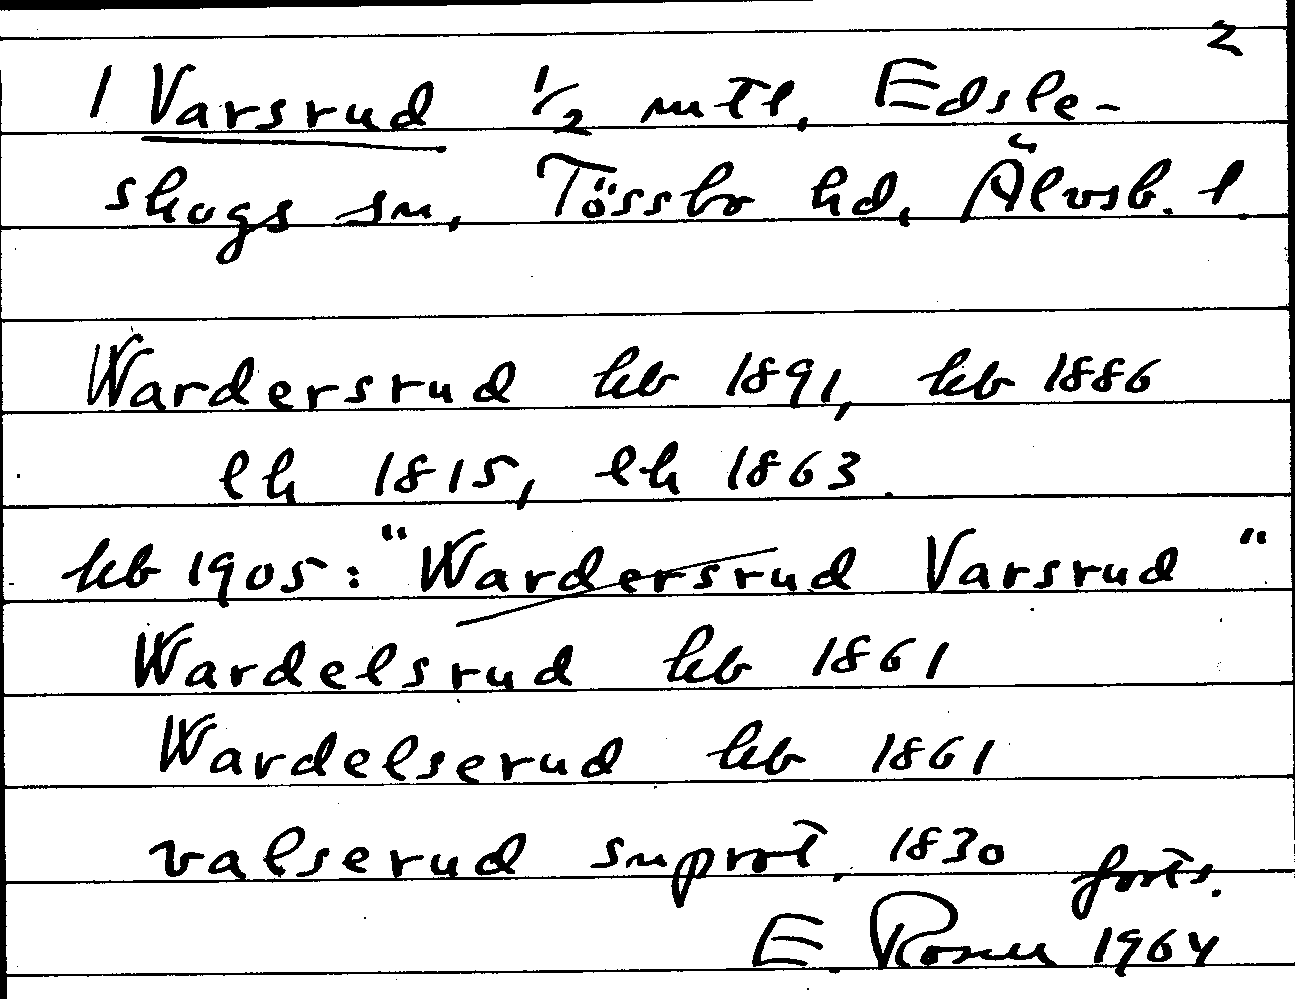 2
1 Varsrud 1/2 mtl. Edsle-
skogs sn, Tössbo hd, Älvsb. l.
Wardersrud kb 1891, kb 1886
lh 1815, lh 1863.
kb 1905: "Wardersrud Varsrud"
Wardelsrud kb 1861
Wardelserud kb 1861
valserud snprot. 1830 forts.
E Rosell 1964